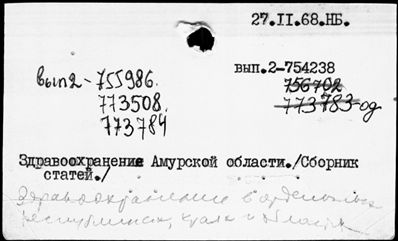 27.II.68.НБ.
вып2-755986.
вып.2-754238
756702
773508.
773783-од
773784
Здравоохранение Амурской области./Сборник
статей./
Здравоохранение в отдельных
республиках, краях и областях